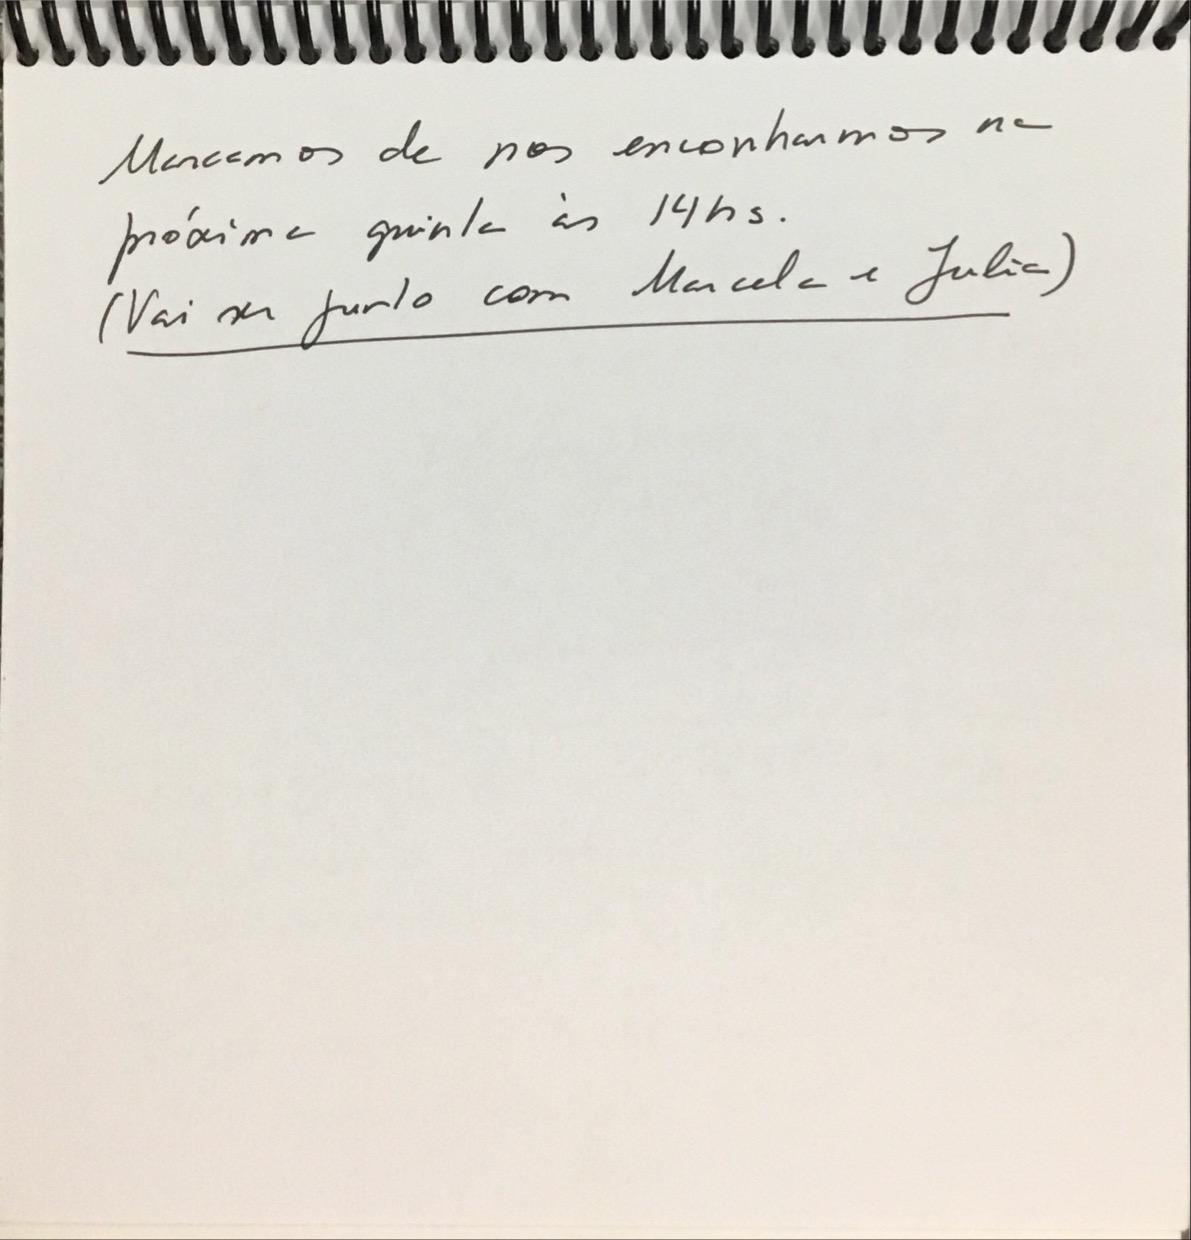 Marcamos de nos encontrarmos na
próxima quinta às 14hs.
(Vai ser junto com Marcela e Julia)